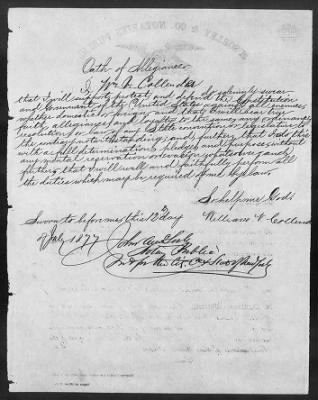 Oath of Allegiance
I Wm A. Callender
that I will support, protect and defend solemnly swear
the Constitution
and Government of the United States against all enemies
whether domestic or foreign and that I will bear true
faith, allegiance and loyalty to the same, any ordinance
resolution or law of any State convention or legislature to
the contrary notwithstanding, and further that I do this
with a full determination, pledge and purpose without
any mental reservation or evasion whatsoever and
further that I will well and faithfully perform all
the duties which may be required of me by law.
So help me God.
William A. Callender
Sworn to before me this 12th day
of July 1877
Notary Public
in & for the City, Co & State of New York